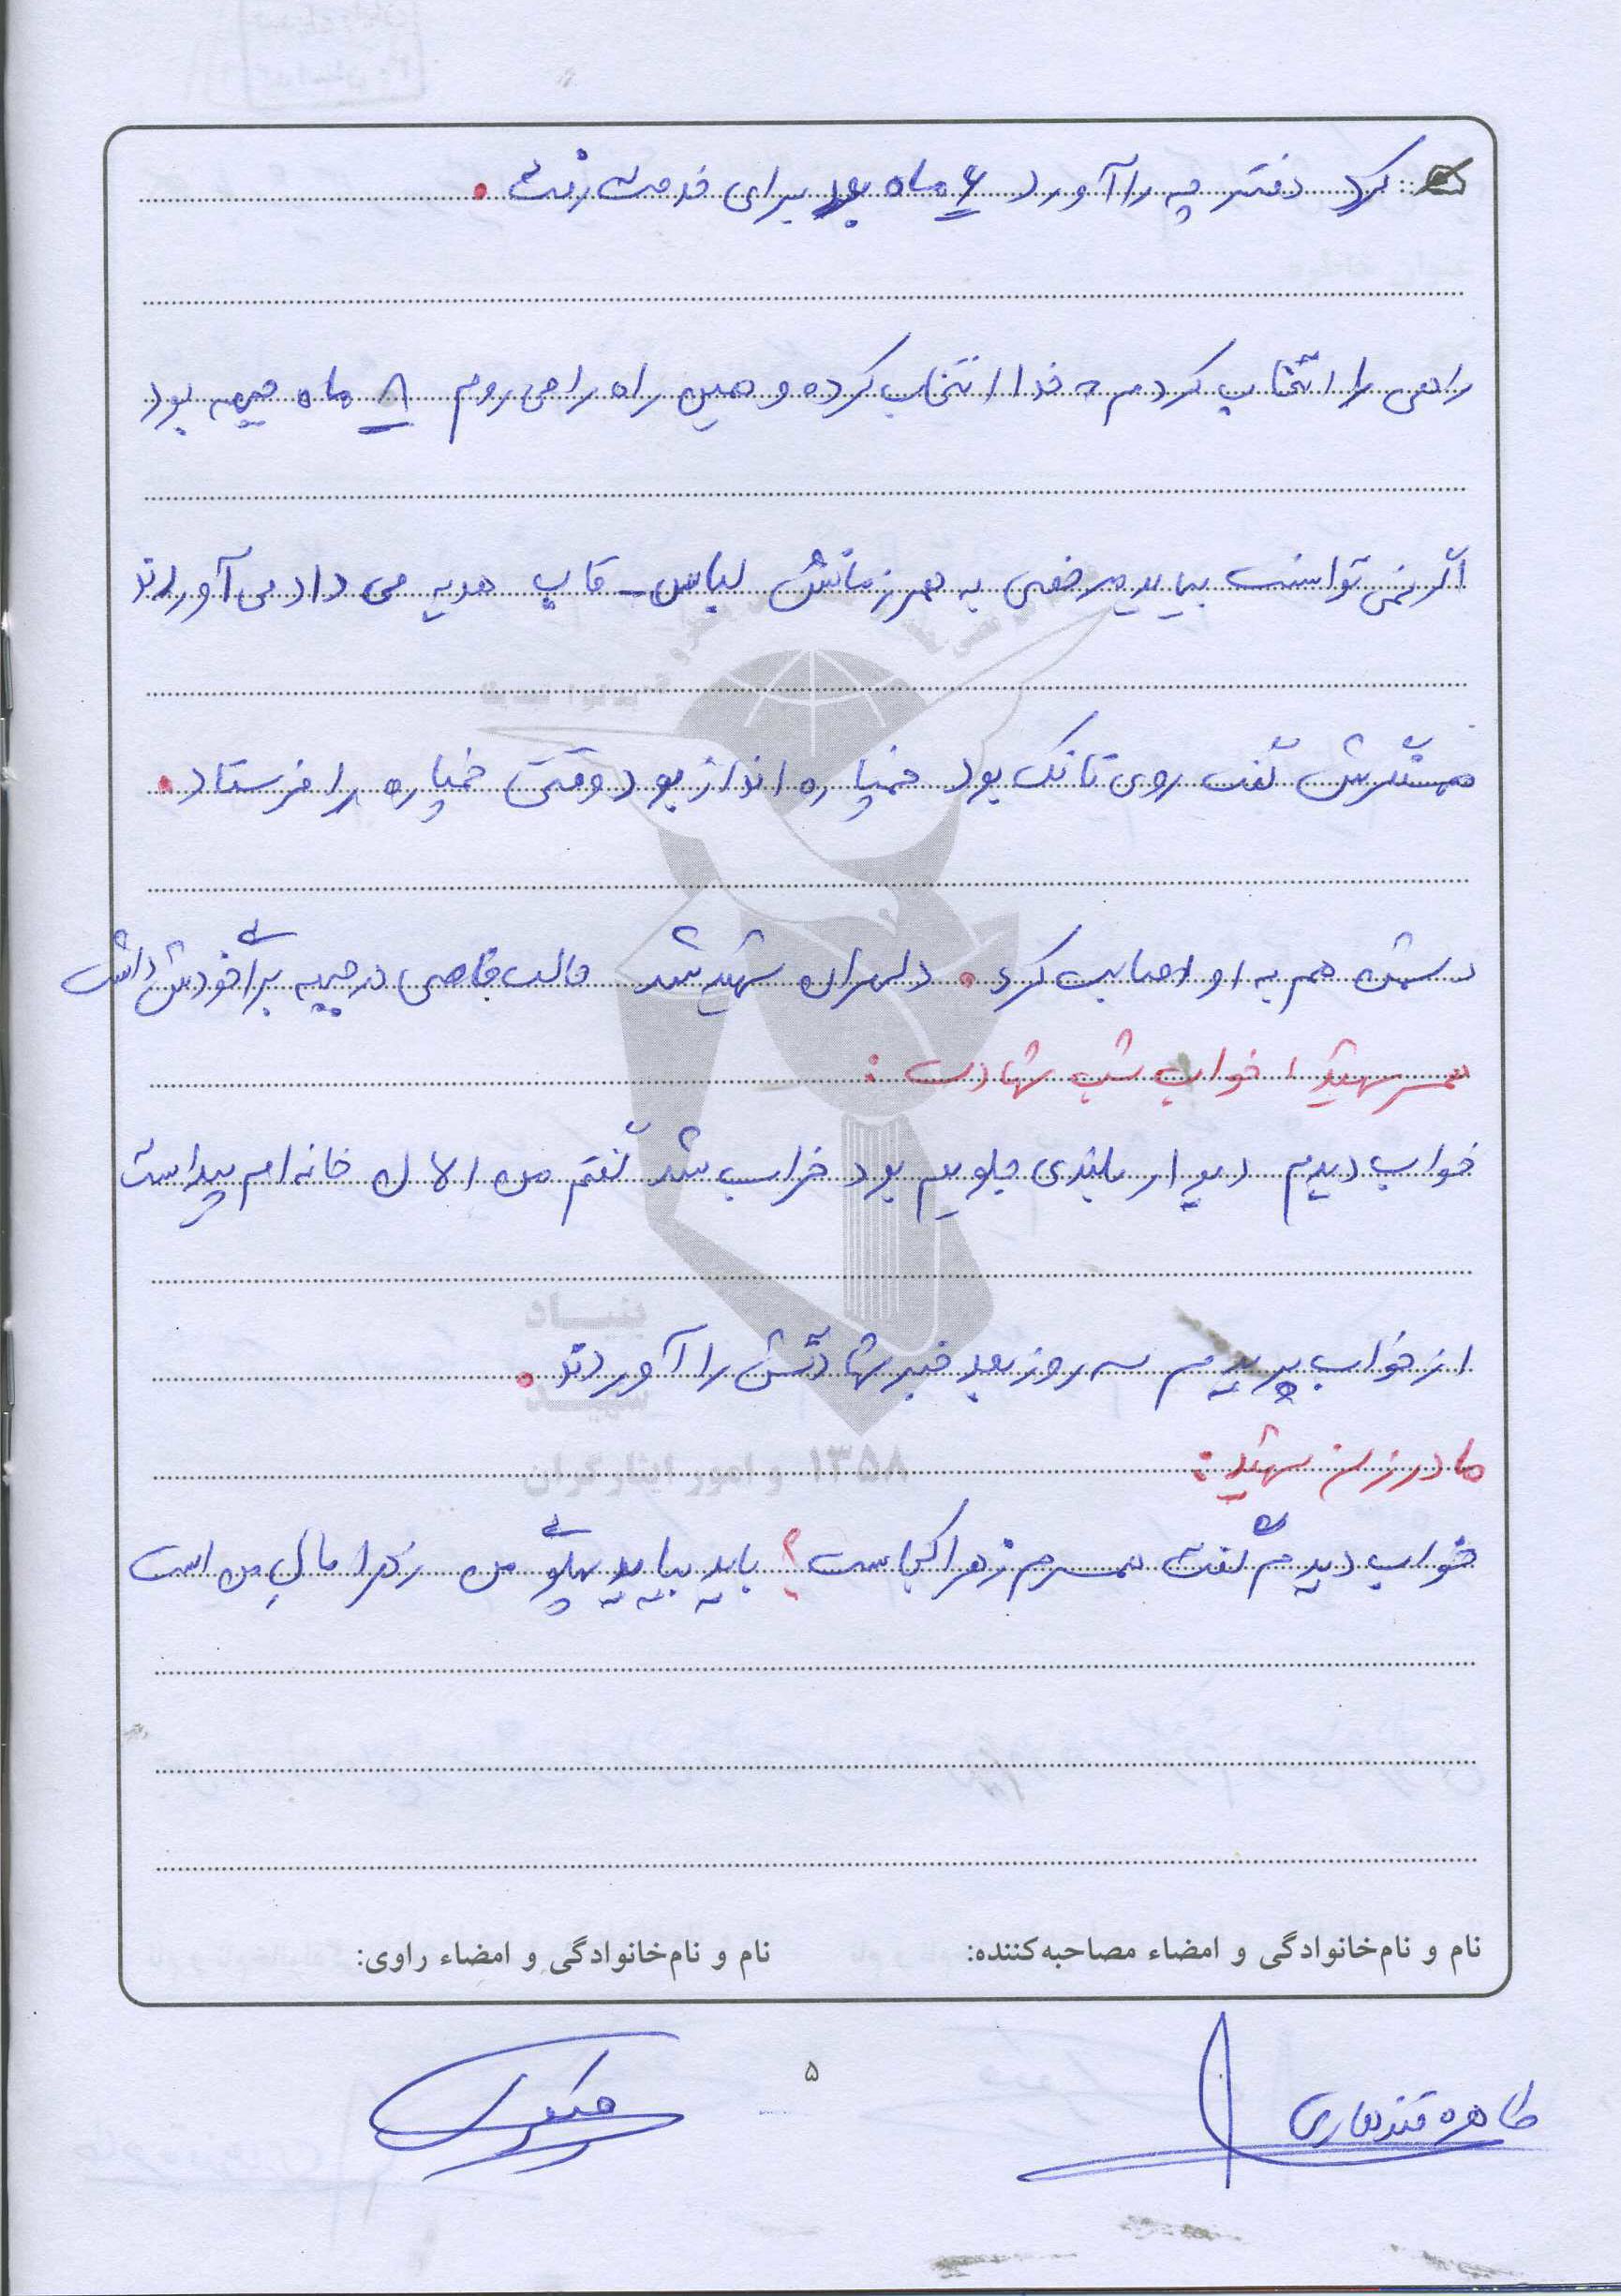 کرد دفترچه را آورد ۶ ماه بود برای خدمت رفت.
راهی را انتخاب کردم که خدا انتخاب کرده و همین راه را می روم ۸ ماه جبهه بود
اگر نمی توانست بیاید مرخصی به همرزمانش لباس - قاب هدیه می داد می آوردند
همسنگرش گفت روی تانک بود خمپاره انداز بود وقتی خمپاره را فرستاد.
دشمن هم به او اصابت کرد. دلهران شهید شد حالت خاصی در جبهه برای خودش داشت
همسر شهید، خواب شب شهادت:
خواب دیدم دیوار بلندی جلویم بود خراب شد گفتم من الان خانه ام پیداست
از خواب پریدم سه روز بعد خبر شهادتش را آوردند.
مادرزن شهید:
خواب دیدم گفت همسرم زهرا کجاست؟ باید بیاید پهلوی من زهرا مال من است
نام و نام‌خانوادگی و امضاء مصاحبه‌کننده: نام و نام‌خانوادگی و امضاء راوی:
۵
طاهره قندهاری